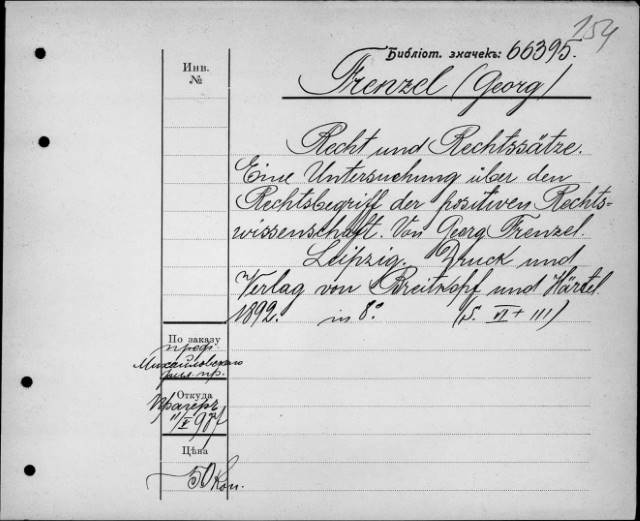 154
Библіот. значекъ: 66395.
Инв.
№
Frenzel (Georg)
Recht und Rechtssätze.
Eine Untersuchung über den
Rechtsbegriff der positiven Rechts-
wissenschaft. Von Georg Frenzel.
Leipzig. Druck und
Verlag von Breitkopf und Härtel
1892. in 8°. (S. VI + III)
По заказу
проф.
Михайловскаго
Откуда
Прагеръ
Цѣна
50 коп.